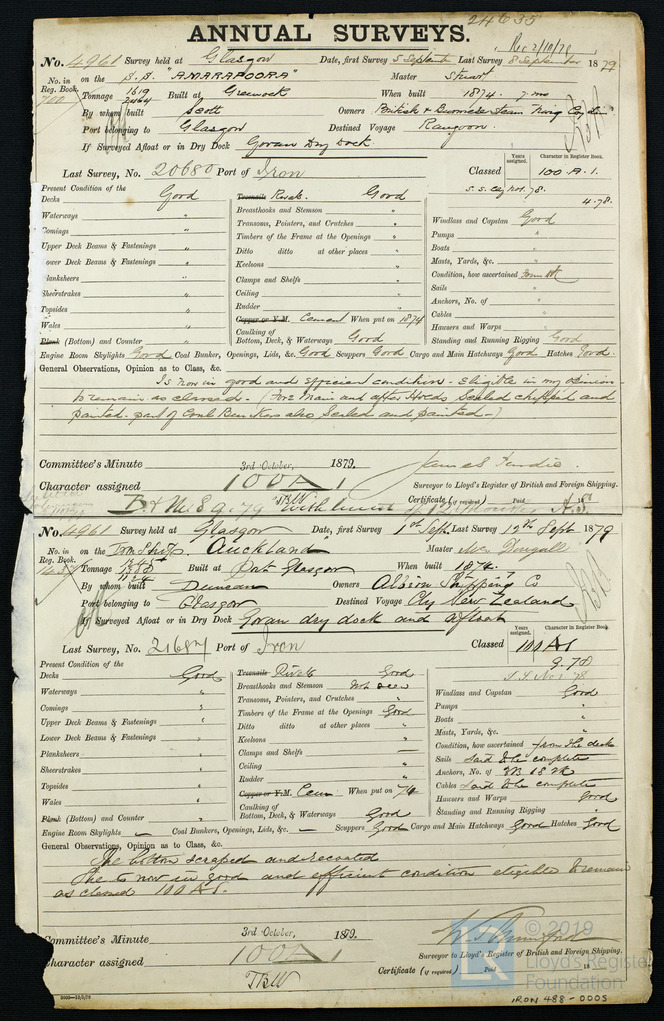 24655
ANNUAL SURVEYS.
Rec 2/10/79
No. 4961 Survey held at Glasgow Date, first Survey 5 September Last Survey 8 September 1879
No. in Reg. Book. 700 on the S.S. "AMARAPOORA" Master Stuart
Tonnage 1619 2464 Built at Greenock When built 1874. 7 mo
By whom built Scott Owners British & Burmese Steam Navig Coy
Port belonging to Glasgow Destined Voyage Rangoon.
If Surveyed Afloat or in Dry Dock Govan Dry Dock.
Last Survey, No. 20680 Port of Iron Classed Years assigned. Character in Register Book. 100 A. 1.
S.S. Nov. 78.
4.78.
Present Condition of the
Decks Good
Waterways "
Comings "
Upper Deck Beams & Fastenings "
Lower Deck Beams & Fastenings "
Planksheers "
Sheerstrakes "
Topsides "
Wales "
Plank (Bottom) and Counter "
Treenails Good
Breasthooks and Stemson "
Transoms, Pointers, and Crutches "
Timbers of the Frame at the Openings "
Ditto ditto at other places "
Keelsons "
Clamps and Shelfs "
Ceiling "
Rudder "
Copper or Y.M. Cement When put on 1874
Caulking of Bottom, Deck, & Waterways Good
Windlass and Capstan Good
Pumps "
Boats "
Masts, Yards, &c. "
Condition, how ascertained
Sails "
Anchors, No. of "
Cables "
Hawsers and Warps "
Standing and Running Rigging Good
Engine Room Skylights Good Coal Bunker, Openings, Lids, &c. Good Scuppers Good Cargo and Main Hatchways Good Hatches Good.
General Observations, Opinion as to Class, &c.
Is now in good and efficient condition. Eligible in my opinion
to remain as classed. (Fore Main and after Holds Scaled chipped and
painted. part of Coal Bunkers also Scaled and painted.)
Committee's Minute 3rd October, 1879.
Character assigned 100 A 1
Surveyor to Lloyd's Register of British and Foreign Shipping.
Certificate (if required) Paid 18
No. 4961 Survey held at Glasgow Date, first Survey 1st Sept. Last Survey 12th Sept 1879
No. in Reg. Book. on the Iron Ship. Auckland Master Mc Dougall
Tonnage Built at Port Glasgow When built 1874.
By whom built Duncan Owners Albion Shipping Co
Port belonging to Glasgow Destined Voyage New Zealand
If Surveyed Afloat or in Dry Dock Govan dry dock and afloat
Last Survey, No. 21684 Port of Iron Classed Years assigned. Character in Register Book. 100 A1
9.78
Present Condition of the
Decks Good
Waterways "
Comings "
Upper Deck Beams & Fastenings "
Lower Deck Beams & Fastenings "
Planksheers "
Sheerstrakes "
Topsides "
Wales "
Plank (Bottom) and Counter "
Treenails Rivets Good
Breasthooks and Stemson Not seen
Transoms, Pointers, and Crutches "
Timbers of the Frame at the Openings Good
Ditto ditto at other places "
Keelsons "
Clamps and Shelfs —
Ceiling "
Rudder "
Copper or Y.M. Cem When put on 74
Caulking of Bottom, Deck, & Waterways Good
Windlass and Capstan Good
Pumps "
Boats "
Masts, Yards, &c. "
Condition, how ascertained from the deck
Sails said to be complete
Anchors, No. of
Cables said to be complete
Hawsers and Warps Good
Standing and Running Rigging "
Engine Room Skylights — Coal Bunkers, Openings, Lids, &c. — Scuppers Good Cargo and Main Hatchways Good Hatches Good
General Observations, Opinion as to Class, &c.
The bottom scraped and recoated
She is now in good and efficient condition eligible to remain
as classed 100 A1.
Committee's Minute 3rd October, 1879.
Character assigned 100 A 1
TBW
Surveyor to Lloyd's Register of British and Foreign Shipping.
Certificate (if required) Paid 18
© 2019
Lloyd's Register
Foundation
IRON 488-0005